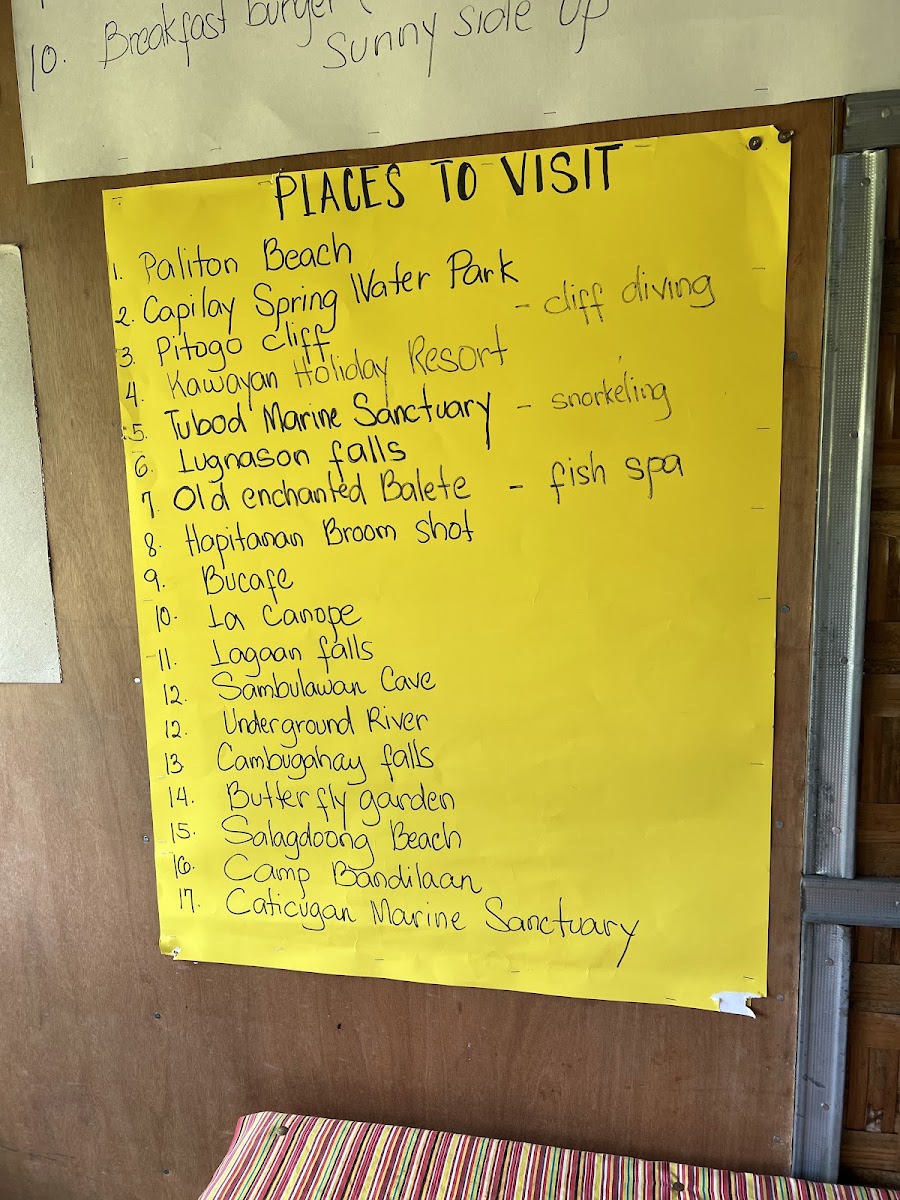 10. Breakfast burger (
Sunny side up
PLACES TO VISIT
1. Paliton Beach
2. Capilay Spring Water Park
3. Pitogo cliff - cliff diving
4. Kawayan Holiday Resort
5. Tubod Marine Sanctuary - snorkeling
6. Lugnason falls
7. Old enchanted Balete - fish spa
8. Hapitanan Broom shot
9. Bucafe
10. La Canope
11. Lagaan falls
12. Sambulawan Cave
12. Underground River
13 Cambugahay falls
14. Butterfly garden
15. Salagdoong Beach
16. Camp Bandilaan
17. Caticugan Marine Sanctuary